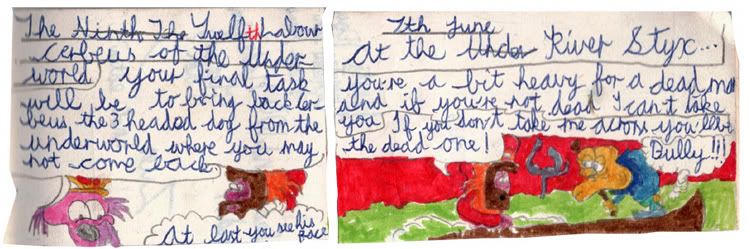 The Ninth The Twelfth labour
Cerbeus of the Under
world your final task
will be to bring back cer
beus, the 3 headed dog from the
underworld where you may
not come back
At last you see his
face
7th June
At the Under River Styx...
you're a bit heavy for a dead man
and if you're not dead I can't take
you If you don't take me across you'll be
the dead one!
Bully!!!